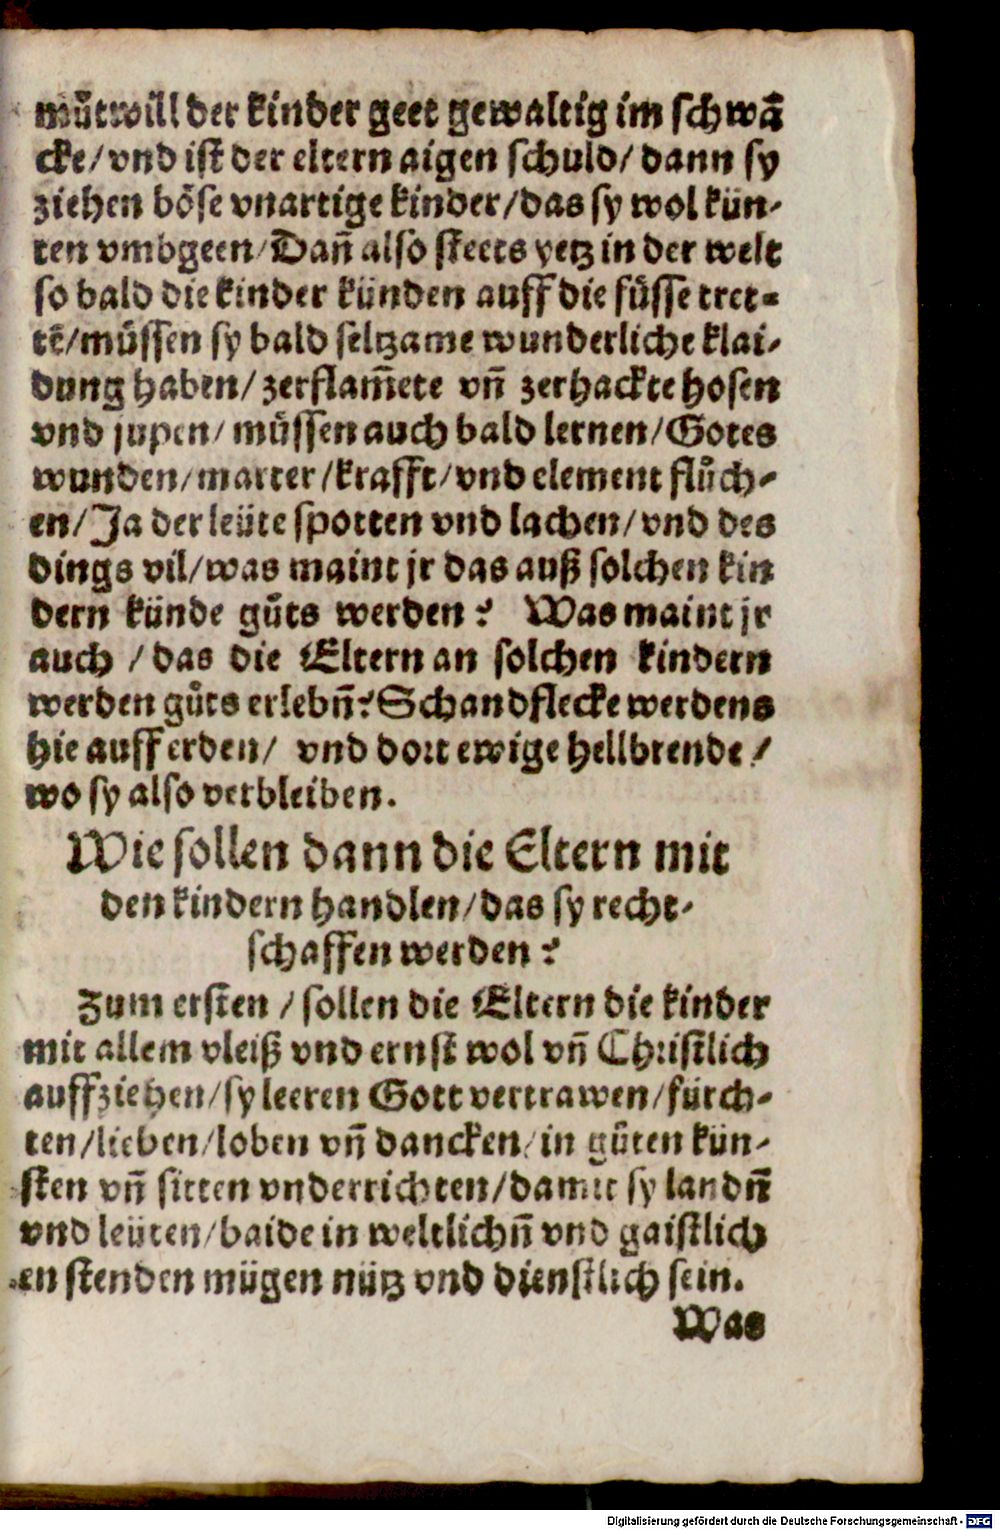 můtwill der kinder geet gewaltig im schwā
cke/vnd ist der eltern aigen schuld/dann sy
ziehen böse vnartige kinder/das sy wol kün-
ten vmbgeen/Dañ also steets yetz in der welt
so bald die kinder künden auff die füsse tret-
tē/müssen sy bald seltzame wunderliche klai-
dung haben/zerflam̄ete vñ zerhackte hosen
vnd jupen/müssen auch bald lernen/Gotes
wunden/marter/krafft/vnd element flůch-
en/Ja der leüte spotten vnd lachen/vnd des
dings vil/was maint jr das auß solchen kin
dern künde gůts werden? Was maint jr
auch /das die Eltern an solchen kindern
werden gůts erlebñ?Schandflecke werdens
hie auff erden/ vnd dort ewige hellbrende/
wo sy also verbleiben.
Wie sollen dann die Eltern mit
den kindern handlen/das sy recht-
schaffen werden?
Zum ersten /sollen die Eltern die kinder
mit allem vleiß vnd ernst wol vñ Christlich
auffziehen/sy leeren Gott vertrawen/fürch-
ten/lieben/loben vñ dancken/in gůten kün-
sten vñ sitten vnderrichten/damit sy landñ
vnd leüten/baide in weltlichñ vnd gaistlich
en stenden mügen nütz vnd dienstlich sein.
Was
Digitalisierung gefördert durch die Deutsche Forschungsgemeinschaft - DFG